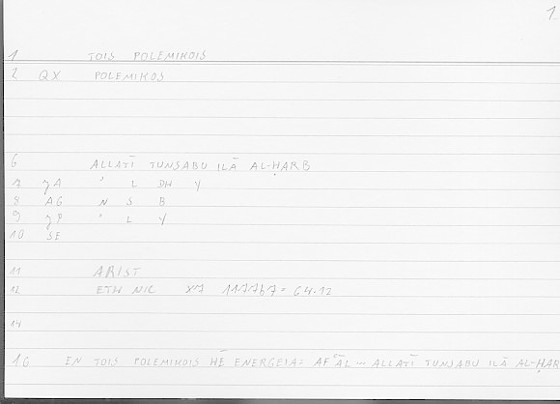 1
1 TOIS POLEMIKOIS
2 QX POLEMIKOS
6 ALLATĪ TUNSABU ILĀ AL-ḤARB
7 ʒA ' L DH Y
8 AG N S B
9 ʒP ' L Y
10 SE
11 ARIST
12 ETH NIC X7 1177b7 = 64.12
14
16 EN TOIS POLEMIKOIS HĒ ENERGEIA: AFʿĀL ... ALLATĪ TUNSABU ILĀ AL-ḤAR